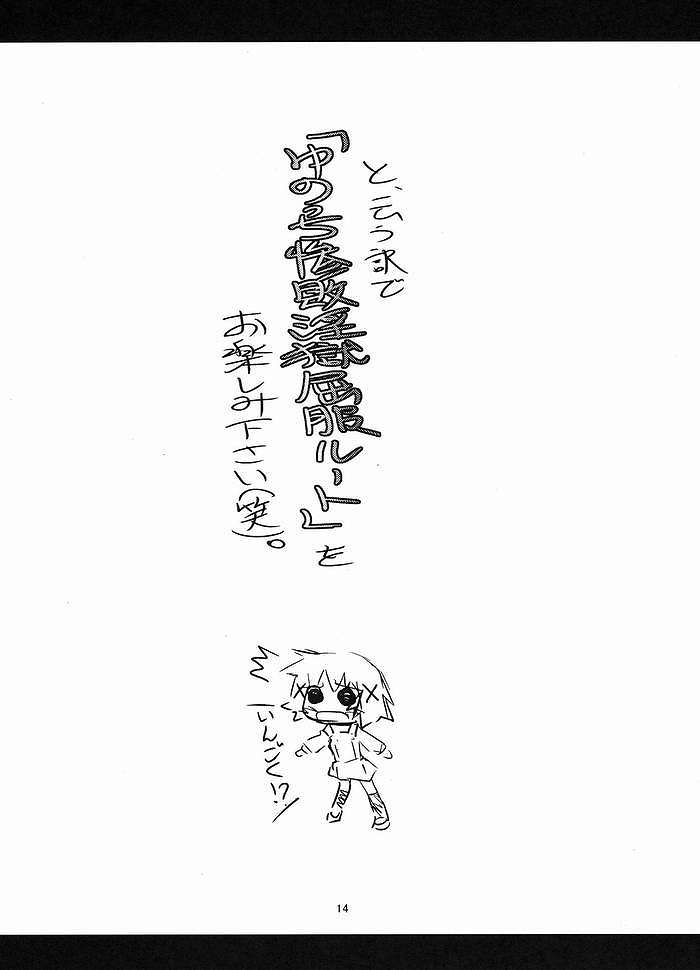 と、云う訳で
「ゆのっち惨敗淫獄屈服ルート」を
お楽しみ下さい(笑)。
いんごく!?
14